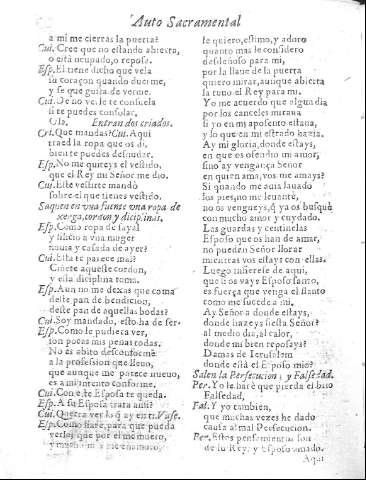 Auto Sacramental
a mi me cierras la puerta?
Cui. Cree que no estando abierta,
o està ocupado, o reposa.
Esp. El tiene dicho que vela
su coraçon quando duerme,
y se que gusta de verme.
Cui. De no velle te consuela
si te puedes consolar,
Ola. Entran dos criados.
Cri. Que mandas? Cui. Aqui
traed la ropa que os di,
bien te puedes desnudar.
Esp. No me quireys el vestido,
que el Rey mi Señor me dio.
Cui. Este vestirte mandò
sobre el que tienes vestido.
Saquen en vna fuente vna ropa de
xerga, cordon y diciplinas.
Esp. Como ropa de sayal
y silicio a vna muger
nouia y casada de ayer?
Cui. Esta te parece mal?
Ciñete aqueste cordon,
y essa diciplina toma.
Esp. Aun no me dexas que coma
deste pan de bendicion,
deste pan de aquellas bodas?
Cui. Soy mandado, esto ha de ser.
Esp. Como le pudiera ver,
son pocas mis penas todas.
No es abito desconforme
a la profession que lleuo,
que aunque me parece nueuo,
es a mi intento conforme.
Cui. Con este Esposa te queda.
Esp. A su Esposa trata assi?
Cui. Querra ver lo q̃ ay en ti. Vase.
Esp. Como hare, para que pueda
verlo, que por el me muero,
y mucho mas me enamoro,
te quiero, estimo, y adoro
quanto mas te considero
desdeñoso para mi,
por la llaue de la puerta
quiero mirar, aunque abierta
la tuuo el Rey para mi.
Yo me acuerdo que algun dia
por los canceles miraua
si yo en mi aposento estaua,
y lo que en mi estrado hazia.
Ay mi gloria, donde estays,
en que os ofendio mi amor,
sino ay vengança Señor
en quien ama, vos me amays?
Si quando me auia lauado
los pies, no me leuantè,
no os vengueys, q̃ ya os busquè
con mucho amor y cuydado.
Las guardas y centinelas
Esposo que os han de amar,
no pueden Señor llorar
mientras vos estays con ellas.
Luego inferese de aqui,
que si os vays Esposo santo,
es fuerça que venga el llanto
como me sucede a mi.
Ay Señor a donde estays,
donde hazeys siesta Señor?
al medio dia, al calor,
donde mi bien reposays?
Damas de Ierusalem
donde està el Esposo mio?
Salen la Persecucion, y Falsedad.
Per. Yo le harè que pierda el brio
Falsedad,
Fal. Y yo tambien,
que muchas vezes he dado
causa al mal Persecucion.
Per. Estos pensamientos son
de su Rey, y Esposo amado.
Aqui